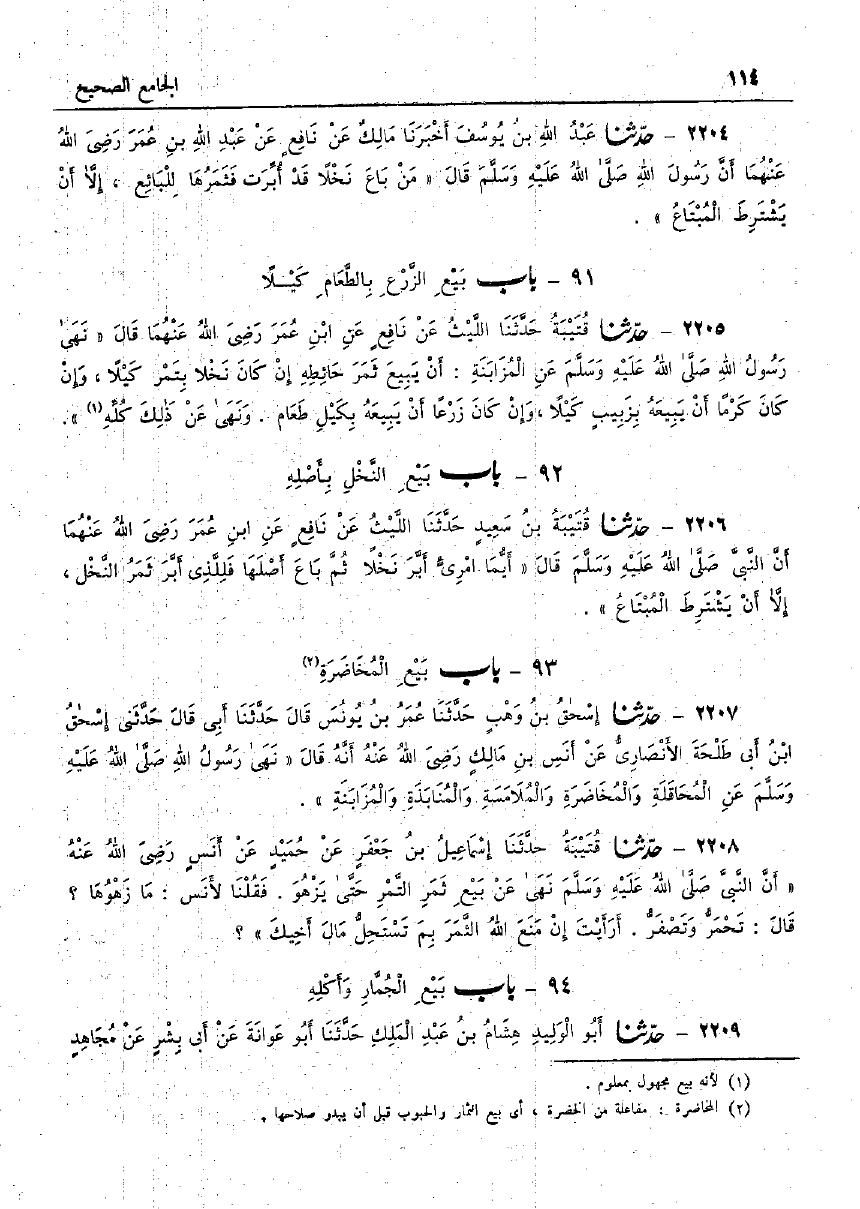 ١١٤ الجامع الصحيح
٢٢٠٤ - حدّثنا عَبْدُ اللهِ بنُ يُوسُفَ أَخْبَرَنَا مَالِكٌ عَنْ نَافِعٍ عَنْ عَبْدِ اللهِ بنِ عُمَرَ رَضِىَ اللهُ
عَنْهُمَا أَنَّ رَسُولَ اللهِ صَلَّىٰ اللهُ عَلَيْهِ وَسَلَّمَ قَالَ « مَنْ بَاعَ نَخْلًا قَدْ أُبِّرَت فَثَمَرُهَا لِلْبَائِعِ ، إِلَّا أَنْ
يَشْتَرِطَ الْمُبْتَاعُ » .
٩١ - باب بَيْعِ الزَّرْعِ بِالطَّعَامِ كَيْلًا
٢٢٠٥ - حدّثنا قُتَيْبَةُ حَدَّثَنَا اللَّيْثُ عَنْ نَافِعٍ عَنِ ابْنِ عُمَرَ رَضِىَ اللهُ عَنْهُمَا قَالَ « نَهَىٰ
رَسُولُ اللهِ صَلَّىٰ اللهُ عَلَيْهِ وَسَلَّمَ عَنِ الْمُزَابَنَةِ : أَنْ يَبِيعَ ثَمَرَ حَائِطِهِ إِنْ كَانَ نَخْلًا بِتَمْرٍ كَيْلًا ، وَإِنْ
كَانَ كَرْمًا أَنْ يَبِيعَهُ بِزَبِيبٍ كَيْلًا ، وَإِنْ كَانَ زَرْعًا أَنْ يَبِيعَهُ بِكَيْلِ طَعَامٍ . وَنَهَىٰ عَنْ ذٰلِكَ كُلِّهِ (١) » .
٩٢ - باب بَيْعِ النَّخْلِ بِأَصْلِهِ
٢٢٠٦ - حدّثنا قُتَيْبَةُ بنُ سَعِيدٍ حَدَّثَنَا اللَّيْثُ عَنْ نَافِعٍ عَنِ ابنِ عُمَرَ رَضِىَ اللهُ عَنْهُمَا
أَنَّ النَّبِىَّ صَلَّىٰ اللهُ عَلَيْهِ وَسَلَّمَ قَالَ « أَيُّمَا امْرِئٍ أَبَّرَ نَخْلًا ثُمَّ بَاعَ أَصْلَهَا فَلِلَّذِى أَبَّرَ ثَمَرُ النَّخْلِ ،
إِلَّا أَنْ يَشْتَرِطَ الْمُبْتَاعُ » .
٩٣ - باب بَيْعِ الْمُخَاضَرَةِ (٢)
٢٢٠٧ - حدّثنا إِسْحٰقُ بنُ وَهْبٍ حَدَّثَنَا عُمَرُ بنُ يُونُسَ قَالَ حَدَّثَنَا أَبِى قَالَ حَدَّثَنِى إِسْحٰقُ
ابْنُ أَبِى طَلْحَةَ الأَنْصَارِىُّ عَنْ أَنَسِ بنِ مَالِكٍ رَضِىَ اللهُ عَنْهُ أَنَّهُ قَالَ « نَهَىٰ رَسُولُ اللهِ صَلَّىٰ اللهُ عَلَيْهِ
وَسَلَّمَ عَنِ الْمُحَاقَلَةِ وَالْمُخَاضَرَةِ وَالْمُلَامَسَةِ وَالْمُنَابَذَةِ وَالْمُزَابَنَةِ » .
٢٢٠٨ - حدّثنا قُتَيْبَةُ حدَّثَنَا إِسْمَاعِيلُ بنُ جَعْفَرٍ عَنْ حُمَيْدٍ عَنْ أَنَسٍ رَضِىَ اللهُ عَنْهُ
« أَنَّ النَّبِىَّ صَلَّىٰ اللهُ عَلَيْهِ وَسَلَّمَ نَهَىٰ عَنْ بَيْعِ ثَمَرِ التَّمْرِ حَتَّىٰ يَزْهُوَ . فَقُلْنَا لأَنَسٍ : مَا زَهْوُهَا ؟
قَالَ : تَحْمَرُّ وَتَصْفَرُّ . أَرَأَيْتَ إِنْ مَنَعَ اللهُ الثَّمَرَ بِمَ تَسْتَحِلُّ مَالَ أَخِيكَ » ؟
٩٤ - باب بَيْعِ الْجُمَّارِ وَأَكْلِهِ
٢٢٠٩ - حدّثنا أَبُو الْوَلِيدِ هِشَامُ بنُ عَبْدِ الْمَلِكِ حَدَّثَنَا أَبُو عَوَانَةَ عَنْ أَبِى بِشْرٍ عَنْ مُجَاهِدٍ
(١) لأنه بيع مجهول بمعلوم .
(٢) المخاضرة : مفاعلة من الخضرة ، أى بيع الثمار والحبوب قبل أن يبدو صلاحها .